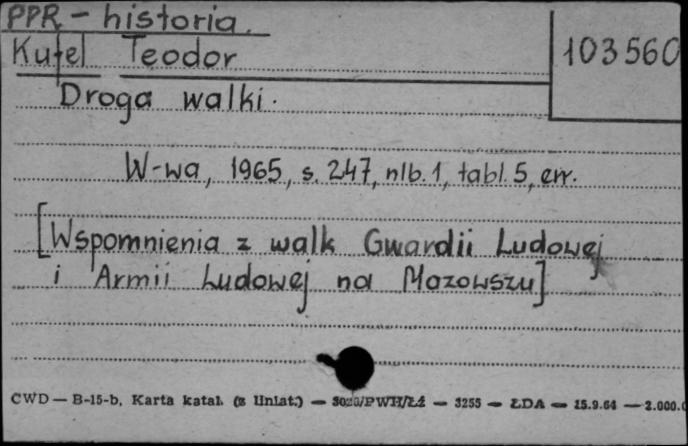 PPR - historia.
Kufel Teodor
103560
Droga walki.
W-wa, 1965, s. 247, nlb. 1, tabl. 5, err.
[Wspomnienia z walk Gwardii Ludowej
i Armii Ludowej na Mazowszu]
CWD — B-15-b. Karta katal. (z liniat.) — /PWH/Łż — 3255 — ŁDA — 15.9.64 — 2.000.0